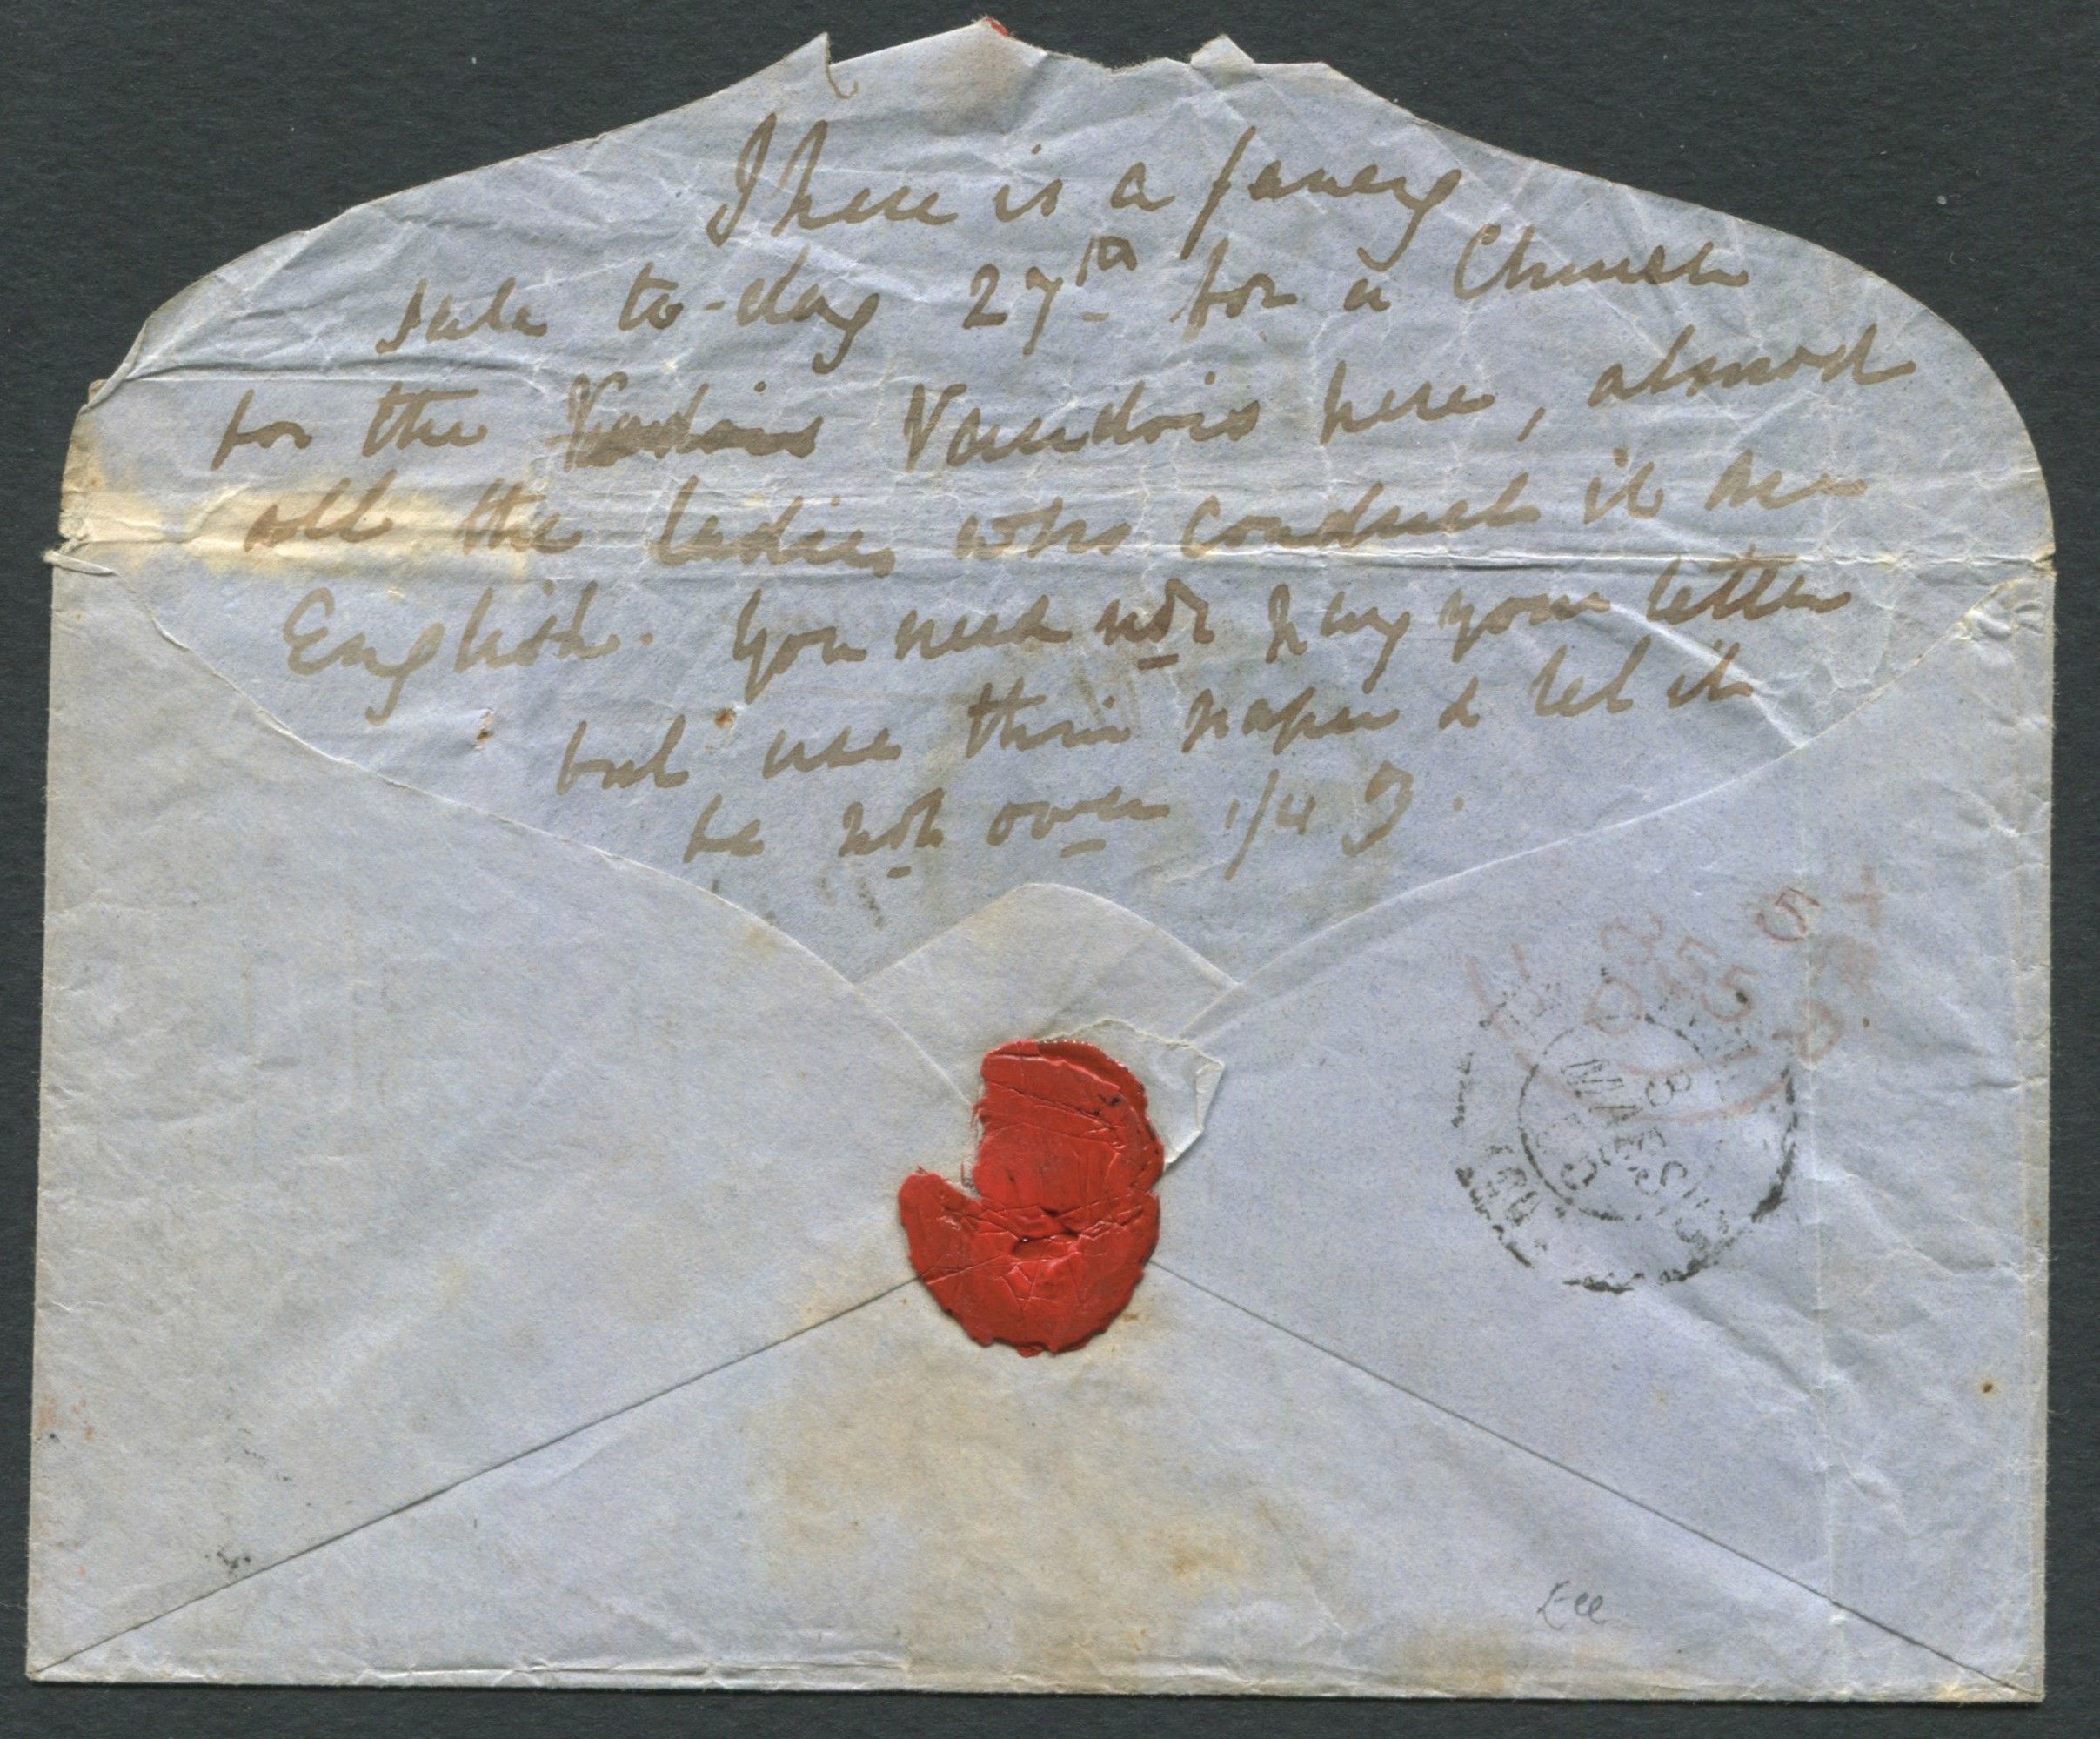 There is a fancy
sale to-day 27th for a Church
for the Vadois Vaudois here, almost
all the ladies who conduct it are
English. You need not pay your letter
but use thin paper & let it
be not over 1/4 oz.
8
MARS
(
Lee